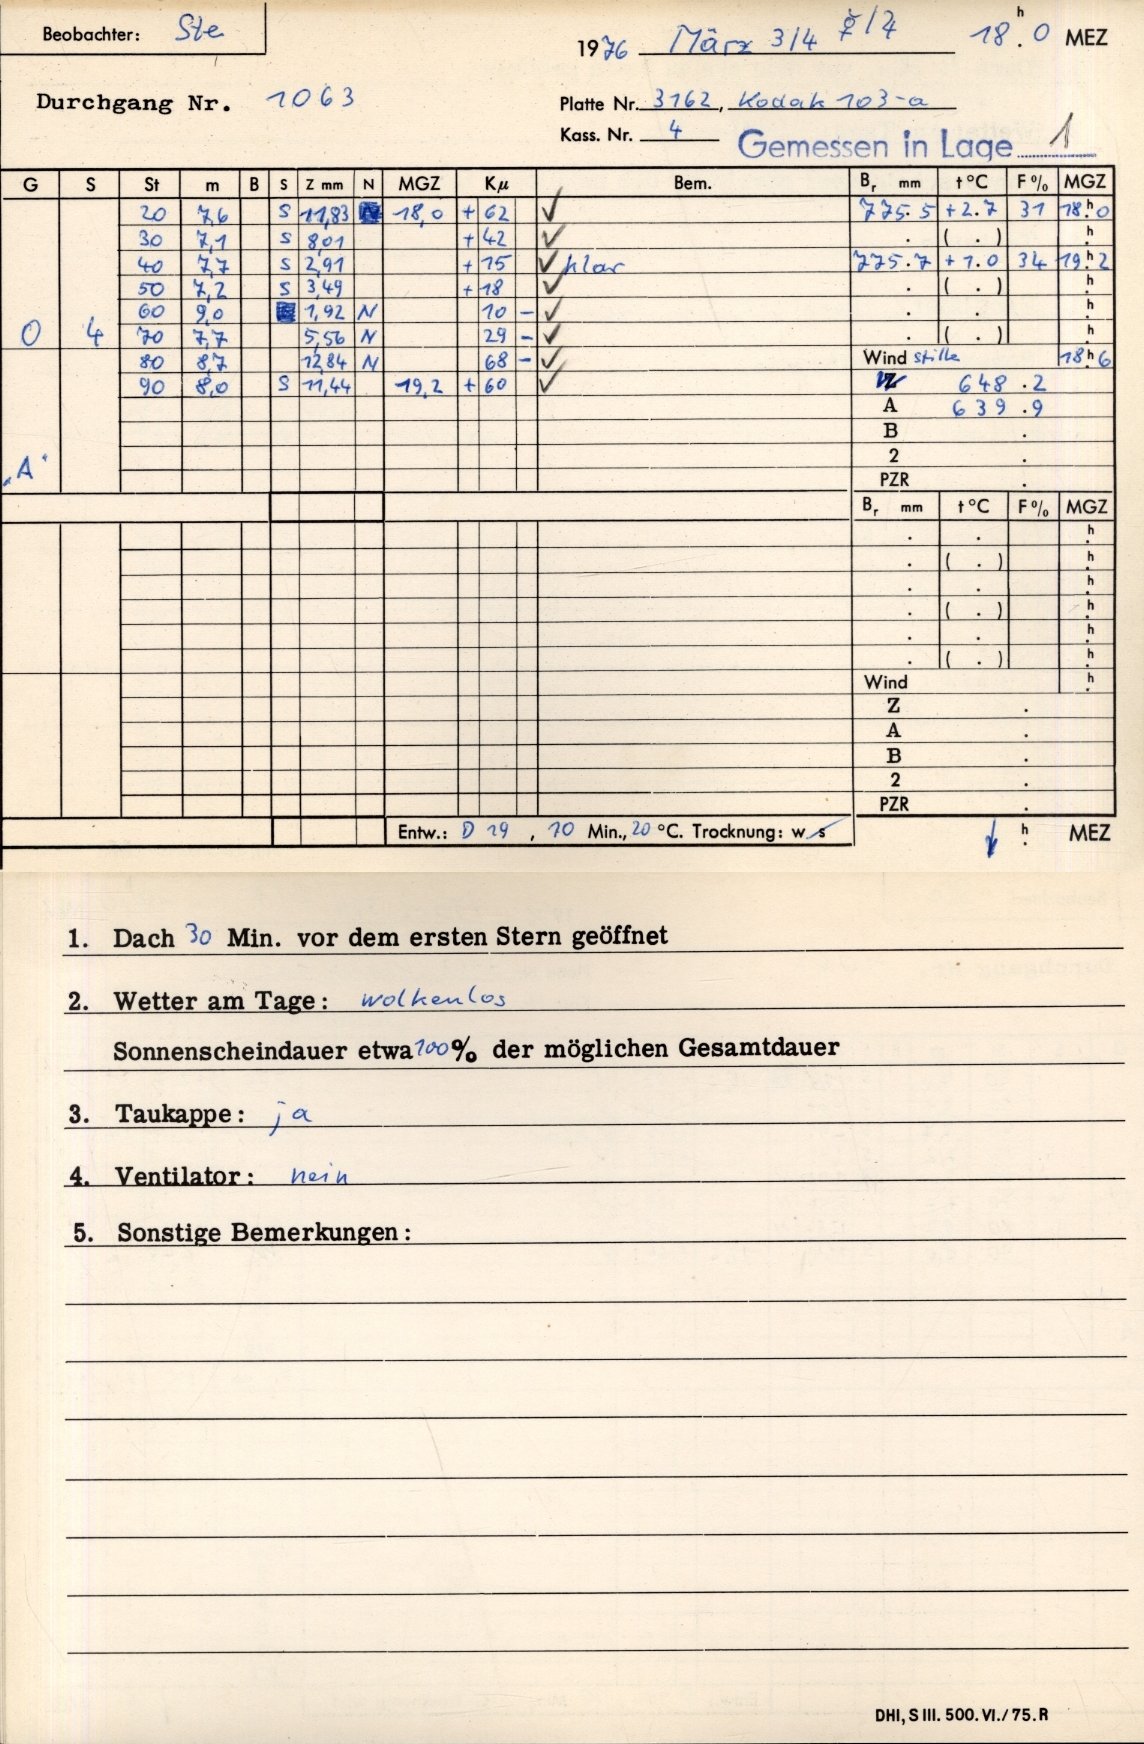 Beobachter: Ste
1976 März 3/4 18h.0 MEZ
Durchgang Nr. 1063
Platte Nr. 3162, Kodak 103-a
Kass. Nr. 4 Gemessen in Lage 1
G S St m B S Z mm N MGZ Kμ Bem. Br mm t°C F% MGZ
20 7,6 S 11,83 N 18,0 + 62 ✓ 775.5 +2.7 31 18h.0
30 7,1 S 8,01 + 42 ✓ . ( . ) h.
40 7,7 S 2,91 + 15 ✓ klar 775.7 +1.0 34 19h.2
50 7,2 S 3,49 + 18 ✓ . ( . ) h.
60 9,0 1,92 N 10 - ✓ . . h.
0 4 70 7,7 5,56 N 29 - ✓ . ( . ) h.
80 8,7 12,84 N 68 - ✓ Wind stille 18h.6
90 8,0 S 11,44 19,2 + 60 ✓ Z 648.2
A 639.9
B .
"A" 2 .
PZR .
Br mm t°C F% MGZ
. . h.
. ( . ) h.
. . h.
. ( . ) h.
. . h.
. ( . ) h.
Wind h.
Z .
A .
B .
2 .
PZR .
Entw.: D 19, 10 Min., 20 °C. Trocknung: w s h. MEZ
1. Dach 30 Min. vor dem ersten Stern geöffnet
2. Wetter am Tage: wolkenlos
Sonnenscheindauer etwa 100% der möglichen Gesamtdauer
3. Taukappe: ja
4. Ventilator: nein
5. Sonstige Bemerkungen:
DHI, S III. 500. VI./75. R